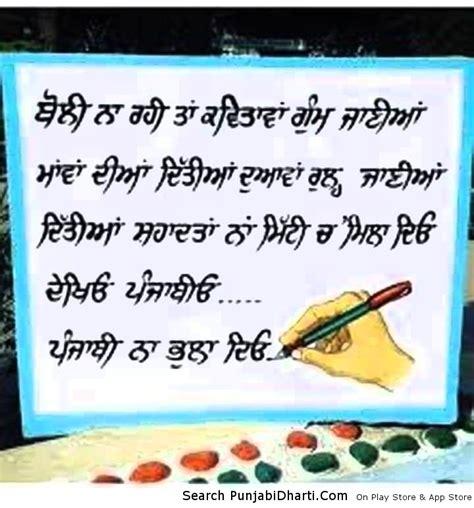 ਬੋਲੀ ਨਾ ਰਹੀ ਤਾਂ ਕਵਿਤਾਵਾਂ ਗੁੰਮ ਜਾਣੀਆਂ
ਮਾਂਵਾਂ ਦੀਆਂ ਦਿੱਤੀਆਂ ਦੁਆਵਾਂ ਰੁਲ੍ਹ ਜਾਣੀਆਂ
ਦਿੱਤੀਆਂ ਸ਼ਹਾਦਤਾਂ ਨਾਂ ਮਿੱਟੀ ਚ ਮਿਲਾ ਦਿਓ
ਦੇਖਿਓ ਪੰਜਾਬੀਓ.....
ਪੰਜਾਬੀ ਨਾ ਭੁਲਾ ਦਿਓ..
Search PunjabiDharti.Com On Play Store & App Store